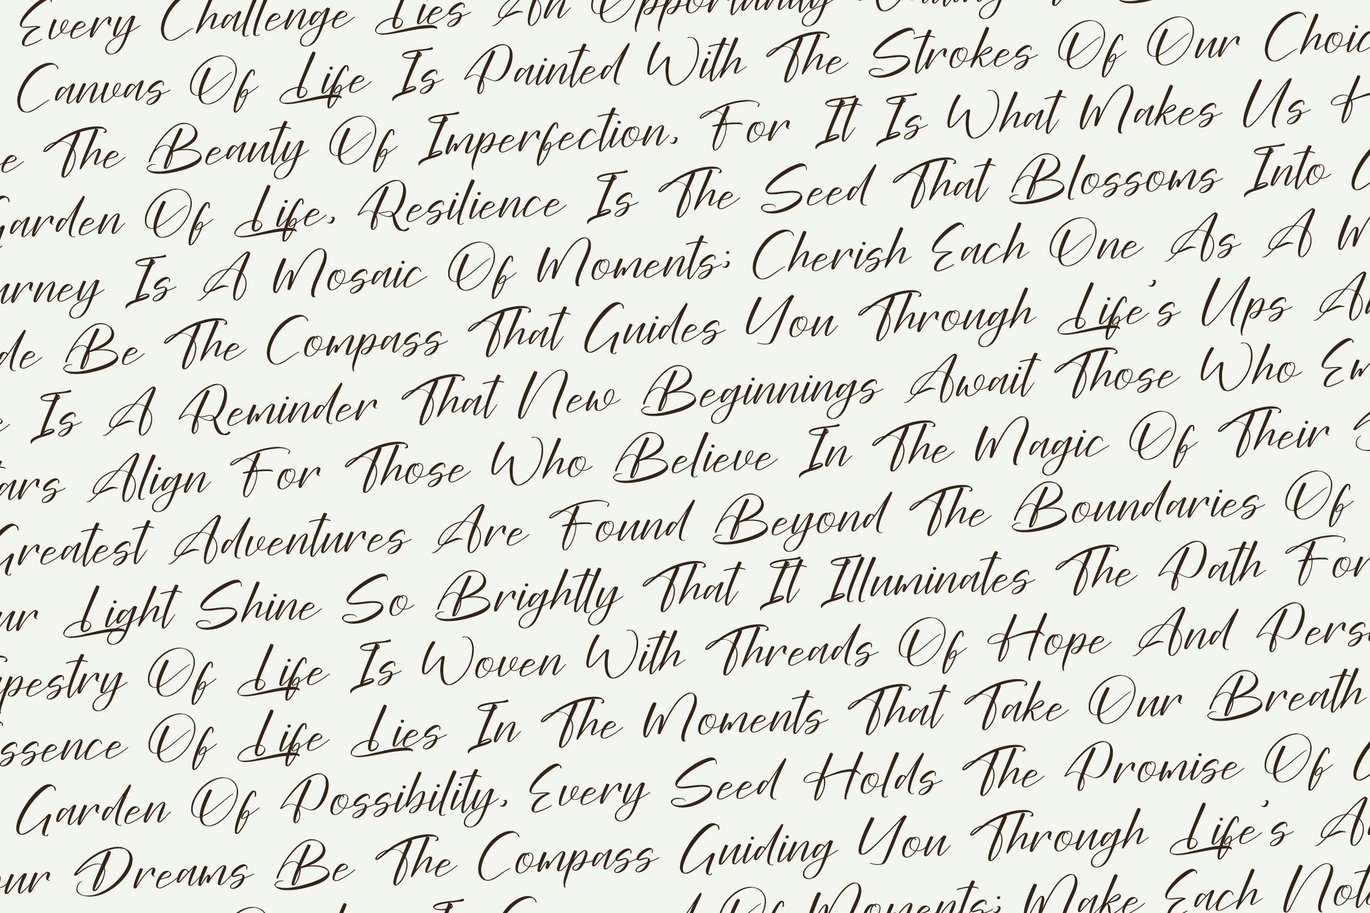 Every Challenge Lies An Opportunity
Canvas Of Life Is Painted With The Strokes Of Our
The Beauty Of Imperfection, For It Is What Makes Us
Garden Of Life, Resilience Is The Seed That Blossoms Into
Is A Mosaic Of Moments; Cherish Each One As A
Be The Compass That Guides You Through Life's Ups
Is A Reminder That New Beginnings Await Those Who
Align For Those Who Believe In The Magic Of Their
Greatest Adventures Are Found Beyond The Boundaries Of
Light Shine So Brightly That It Illuminates The Path For
Of Life Is Woven With Threads Of Hope And
Of Life Lies In The Moments That Take Our Breath
Garden Of Possibility, Every Seed Holds The Promise Of
Dreams Be The Compass Guiding You Through Life's
Of Moments; Make Each